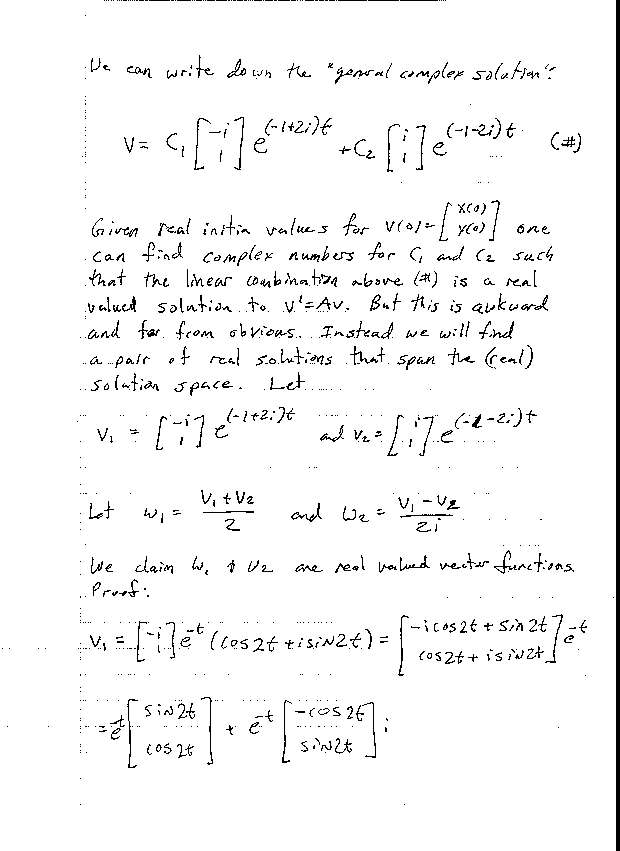 We can write down the "general complex solution":
V = C₁ [-i 1] e^(-1+2i)t + C₂ [i 1] e^(-1-2i)t (#)
Given real initia values for V(0) = [X(0) Y(0)] one
can find complex numbers for C₁ and C₂ such
that the linear combination above (#) is a real
valued solution to V'=AV. But this is awkward
and far from obvious. Instead we will find
a pair of real solutions that span the (real)
solution space. Let
V₁ = [-i 1] e^(-1+2i)t and V₂ = [i 1] e^(-1-2i)t
Let W₁ = (V₁ + V₂)/2 and W₂ = (V₁ - V₂)/2i
We claim W₁ & W₂ are real valued vector functions.
Proof:
V₁ = [-i 1] e^-t (cos2t + i sin2t) = [-i cos2t + sin2t cos2t + i sin2t] e^-t
= e^-t [sin2t cos2t] + e^-t [-cos2t sin2t] i